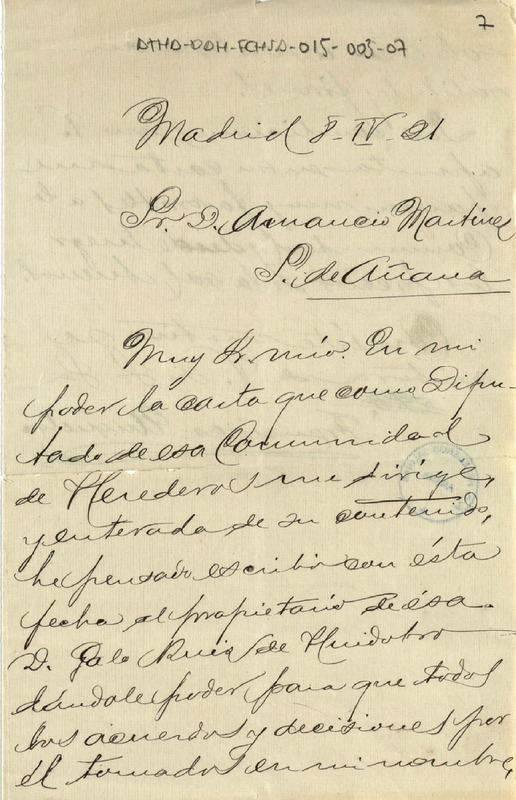 7
ATHA-DDH-FCHSA-015-003-07
Madrid 8-IV-21
Sr. D. Amancio Martinez
S. de Añana
Muy Sr. mío. En mi
poder la carta que como Dipu-
tado de esa Comunidad
de Herederos me dirige,
y enterada de su contenido,
he pensado escribir con ésta
fecha al propietario de ésa
D. Galo Ruiz de Huidobro
dándole poder para que todos
los acuerdos y decisiones por
él tomados en mi nombre,